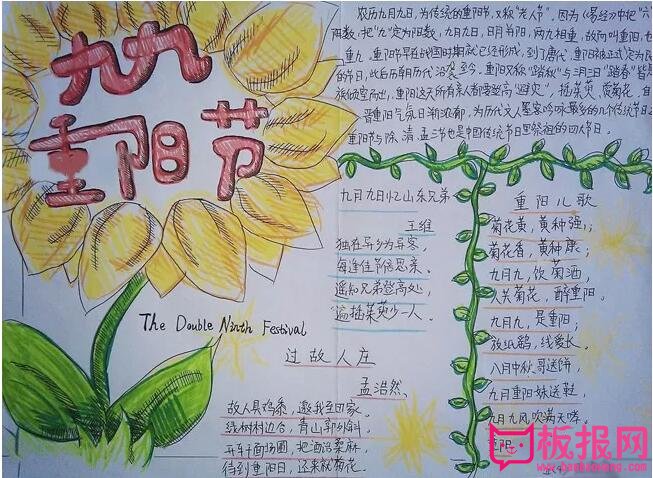 九九
重阳节
农历九月九日,为传统的重阳节,又称"老人节"。因为《易经》中把"六"
阳数,把"九"定为阳数,九月九日,日月并阳,两九相重,故而叫重阳,也
重九。重阳节早在战国时期就已经形成,到了唐代,重阳被正式定为民
的节日,此后历朝历代沿袭至今。重阳又称"踏秋"与三月三日"踏春"皆是
族倾室而出,重阳这天所有亲人都要登高"避灾",插茱萸、赏菊花。自
晋重阳气氛日渐浓郁,为历代文人墨客吟咏最多的几个传统节日之
重阳节与除、清、盂三节也是中国传统节日里祭祖的四大节日。
九月九日忆山东兄弟
王维
独在异乡为异客,
每逢佳节倍思亲。
遥知兄弟登高处,
遍插茱萸少一人。
The Double Ninth Festival
过故人庄
孟浩然
故人具鸡黍,邀我至田家。
绿树村边合,青山郭外斜。
开轩面场圃,把酒话桑麻
待到重阳日,还来就菊花。
重阳儿歌
菊花黄,黄种强;
菊花香,黄种康;
九月九,饮菊酒,
人共菊花,醉重阳。
九月九,是重阳;
放纸鹞,线爱长。
八月中秋,哥送饼,
九月重阳妹送鞋,
九月九风吹满天哮。
重阳
板报网